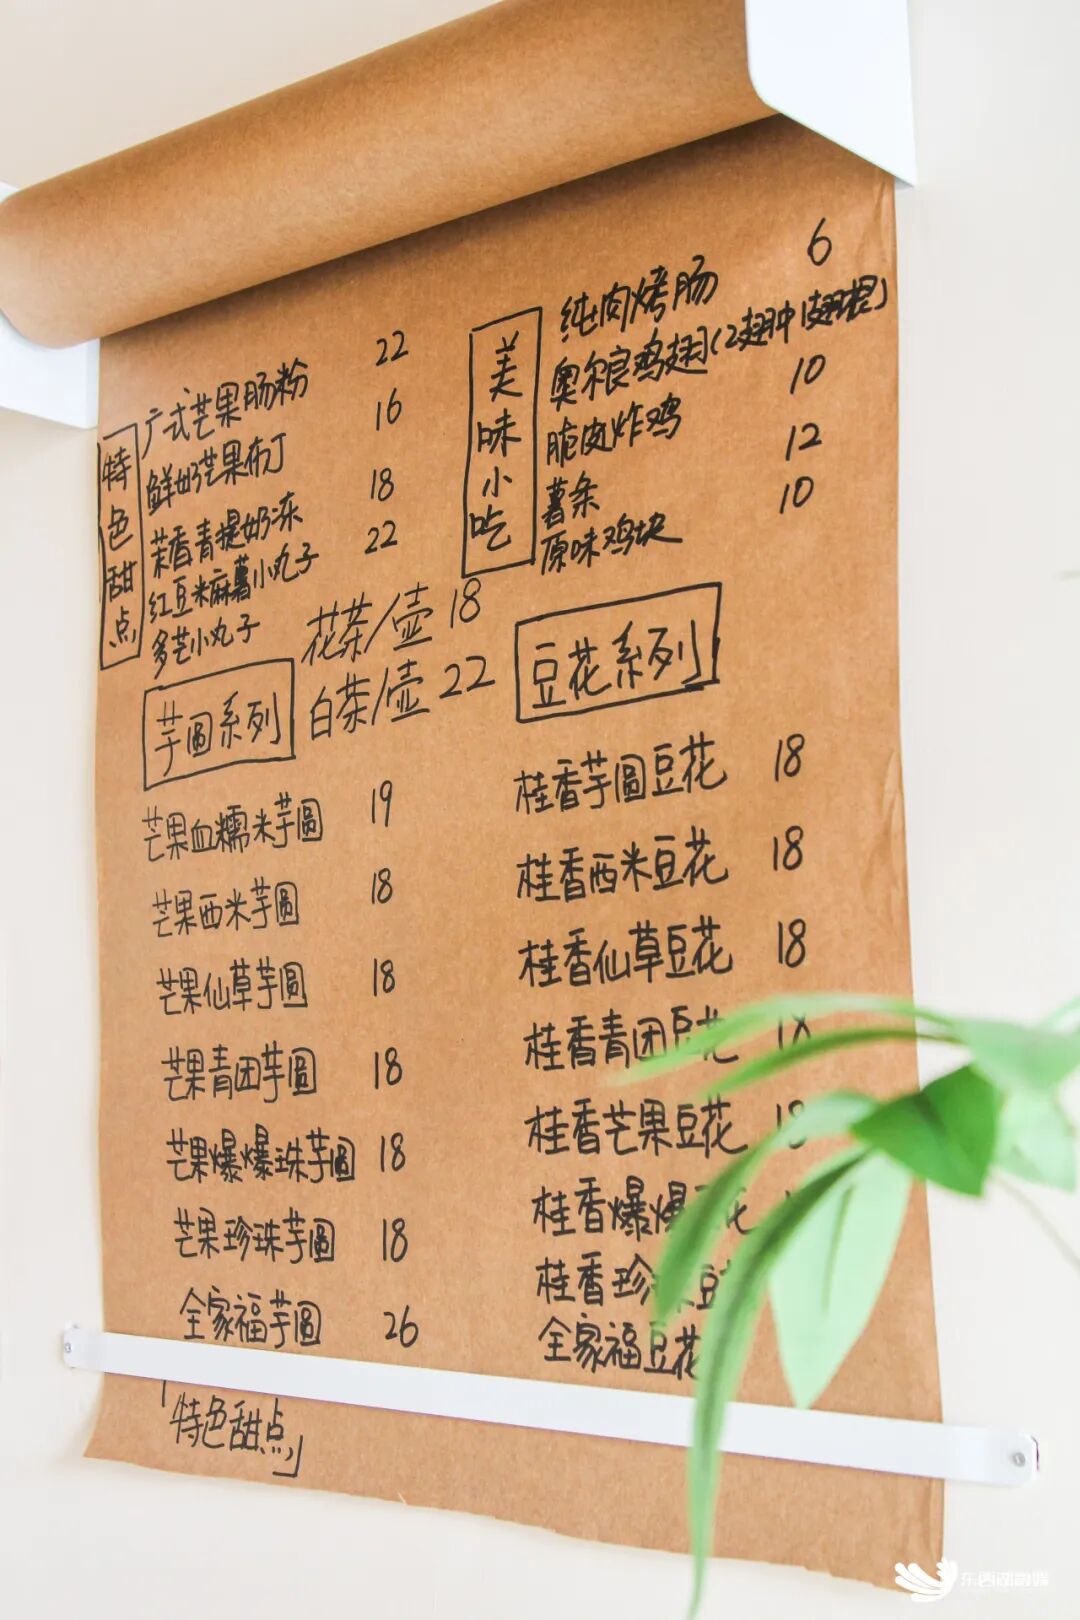 特色甜点
广式芒果肠粉 22
鲜奶芒果布丁 16
茉香青提奶冻 18
红豆米麻薯小丸子 22
多芒小丸子
美味小吃
纯肉烤肠 6
奥尔良鸡翅(2翅中1翅根)
脆皮炸鸡 10
薯条 12
原味鸡块 10
花茶/壶 18
白茶/壶 22
芋圆系列
芒果血糯米芋圆 19
芒果西米芋圆 18
芒果仙草芋圆 18
芒果青团芋圆 18
芒果爆爆珠芋圆 18
芒果珍珠芋圆 18
全家福芋圆 26
豆花系列
桂香芋圆豆花 18
桂香西米豆花 18
桂香仙草豆花 18
桂香青团豆花 18
桂香芒果豆花 18
桂香爆爆 花
桂香珍 豆
全家福豆花
「特色甜点」
东西湖融媒